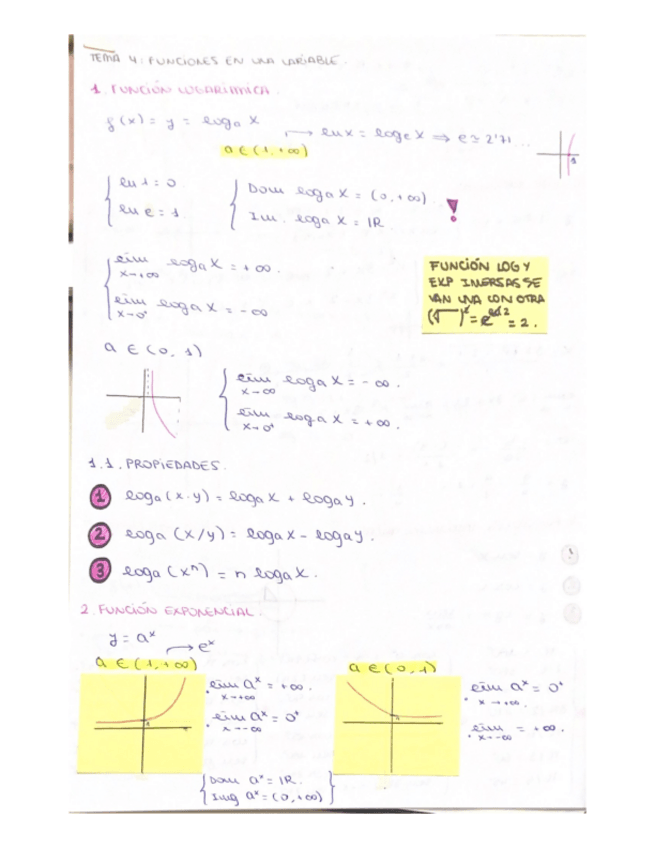 TEMA 4: FUNCIONES EN UNA VARIABLE.
1. FUNCIÓN LOGARÍTMICA.
f(x) = y = loga x
a ∈ (1, +∞)
→ lnx = loge x ⇒ e ≃ 2'71...
ln 1 = 0
ln e = 1
Dom loga x = (0, +∞)
Im. loga x = IR
!
lim x→+∞ loga x = +∞.
lim x→0⁺ loga x = -∞
FUNCIÓN LOG Y
EXP INVERSAS SE
VAN UNA CON OTRA
(√ )² = e^ln 2 = 2.
a ∈ (0, 1)
lim x→∞ loga x = -∞.
lim x→0⁺ loga x = +∞.
1.1. PROPIEDADES.
1 loga (x·y) = loga x + loga y.
2 loga (x/y) = loga x - loga y.
3 loga (xⁿ) = n loga x.
2. FUNCIÓN EXPONENCIAL.
y = aˣ
→ eˣ
a ∈ (1, +∞)
lim x→+∞ aˣ = +∞.
lim x→-∞ aˣ = 0⁺
a ∈ (0, 1)
lim x→+∞ aˣ = 0⁺
lim x→-∞ = +∞.
Dom aˣ = IR.
Img aˣ = (0, +∞)